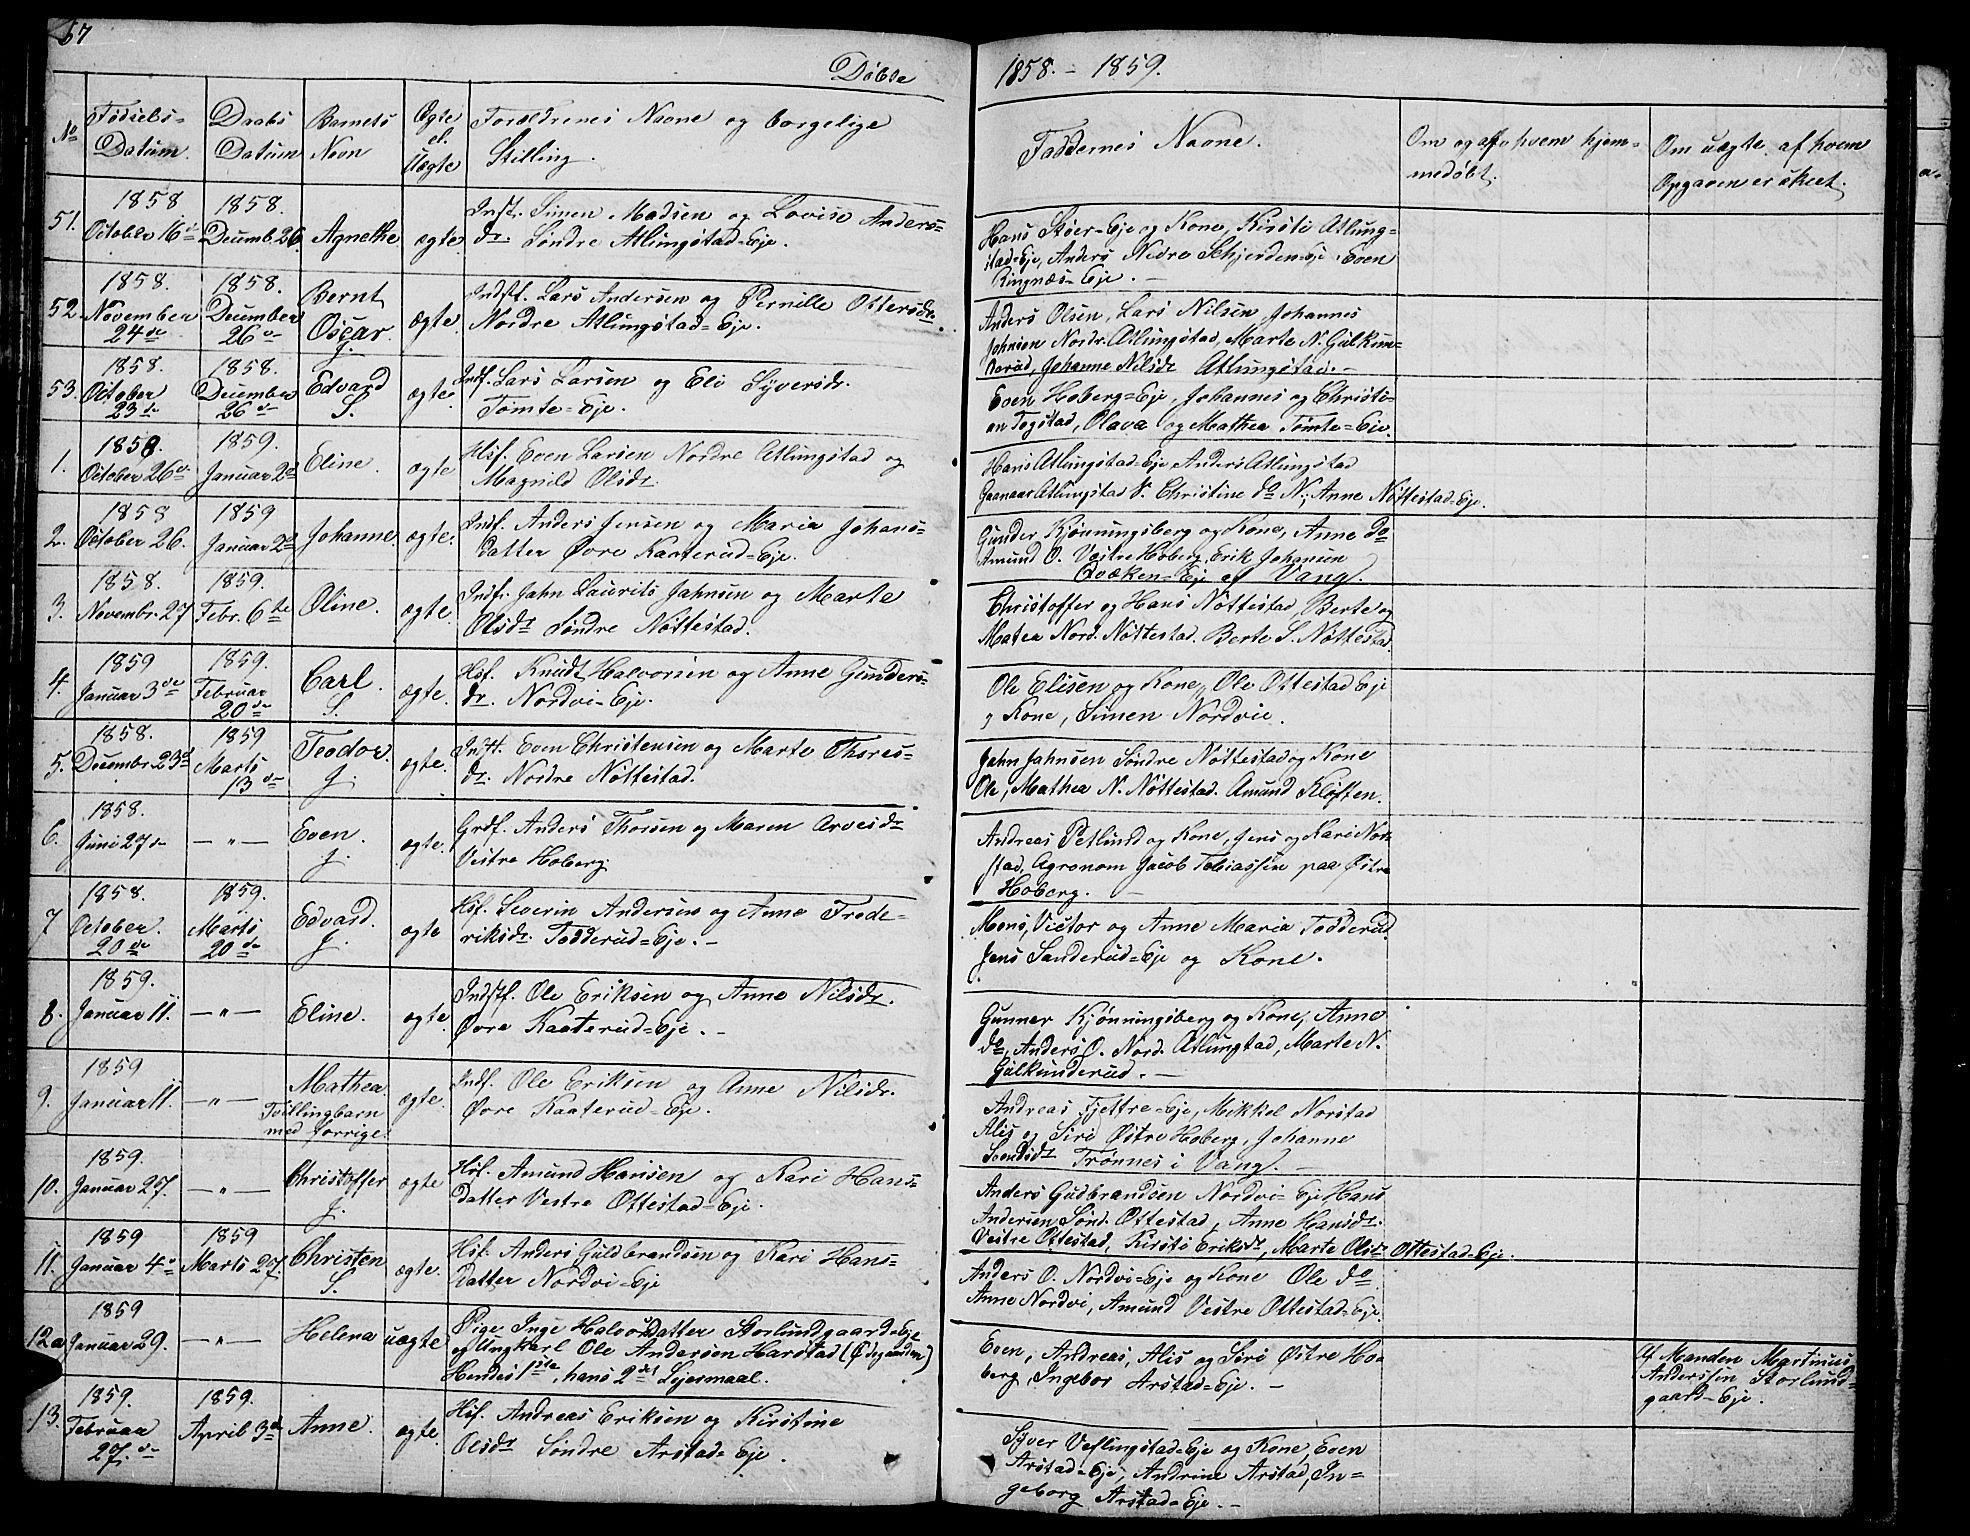 57
Döbte
1858. - 1859.
No
Födsels-
Datum.
Daabs
Datum
Barnets
Navn
Ægte
el.
Uægte
Forældrenes Navne og borgelige
Stilling.
Faddernes Navne.
Om og af hvem hjem=
medöbt.
Om uægte, af hvem
Opgaven er skeet.
51.
1858
October 16de
1858.
Decemb. 26
Agnethe
ægte
Inst. Simen Madsen og Lovise Anders=
dr. Söndre Atlungstad=Eje.
Hans Stöer=Eje og Kone, Kirsti Atlung=
stad=Eje, Anders Nedre Schjerden=Eje Even
Ringnæs=Eje. -
52.
1858.
November
24de
1858.
December
26de
Bernt
Oscar
J.
ægte.
Indst. Lars Andersen og Pernille Ottersdr.
Nordre Atlungstad=Eje.
Anders Olsen, Lars Nilsen, Johannes
Johnsen Nordr. Atlungstad, Marte N. Gulkun=
derud, Johanne Nilsdr Atlungstad. -
53.
1858.
October
23de
1858.
December
26de
Edvard
S.
ægte.
Indf. Lars Larsen og Eli Syversdr.
Tömte=Eje.
Even Hoberg=Eje, Johannes og Christi=
an Togstad, Olava og Mathea Tömte=Eje.
1.
1858
October 26de
1859.
Januar 2d
Eline.
ægte
Hsf. Even Larsen Nordre Atlungstad og
Magnild Olsdr.
Hans Atlungstad=Eje Anders Atlungstad
Gunnar Atlungstad N. Christine do N., Anne Nöttestad=Eje.
2.
1858
October 26.
1859
Januar 2d
Johanne.
ægte.
Indf. Anders Jensen og Maria Johans=
datter Övre Kaaterud=Eje.
Gunder Kjönningsberg og Kone, Anne do
Amund O. Vestre Hoberg, Erik Johansen
Qvæken=Eje af Vang.
3.
1858.
Novembr. 27
1859.
Febr. 6te
Oline.
ægte.
Indf. Jahn Laurits Jahnsen og Marte
Olsdr Söndre Nöttestad.
Christoffer og Hans Nöttestad, Berte og
Matea Nord. Nöttestad. Berte S. Nöttestad.
4.
1859
Januar 3de
1859.
Februar
20de
Carl.
S.
ægte.
Hsf. Knudt Halvorsen og Anne Gunders=
dr. Nordvi=Eje.
Ole Elisen og Kone, Ole Ottestad Eje
og Kone, Simen Nordvie.
5.
1858.
Decembr. 23d
1859
Marts
13de
Teodor.
J.
ægte.
Indst. Even Christensen og Marte Thores=
dr. Nordre Nöttestad.
Jahn Jahnsen Söndre Nöttestad og Kone
Ole, Mathea N. Nöttestad. Amund Klöften.
6.
1858.
Juni 27de
— " —
Even.
J.
ægte.
Grdf. Anders Thorsen og Maren Arvesdr
Vestre Hoberg.
Andreas Petlund og Kone, Jens og Kari Nor=
stad, Agronom Jacob Tobiassen paa Östre
Hoberg. -
7
1858.
October.
20de
1859.
Marts
20de
Edvard.
J.
ægte
Hsf. Severin Andersen og Anne Frede=
riksdr. Tödderud=Eje. -
Mons, Victor og Anne Maria Tödderud.
Jens Sanderud=Eje og Kone.
8.
1859.
Januar 11.
— " —
Eline.
ægte.
Indstf. Ole Eriksen og Anne Nilsdr.
Övre Kaaterud=Eje. -
Gunner Kjönningsberg og Kone, Anne
do, Anders O. Nord. Atlungtad, Marte N.
Gulkunderud. -
9.
1859
Januar 11.
— " —
Mathea.
Tvillingbarn
med forrige.
ægte.
Indf. Ole Eriksen og Anne Nilsdr.
Övre Kaaterud=Eje.
Andreas Fjettre=Eje, Mikkel Norstad
Alis og Siri Östre Hoberg, Johanne
Svendsdr Trönnes i Vang. -
10.
1859.
Januar 27.
— " —
Christoffer
J.
ægte
Hsf. Amund Hansen og Kari Hans=
datter Vestre Ottestad=Eje.
Anders Gudbrandsen Nordvi=Eje Hans
Andersen Sönd. Ottestad, Anne Hansdr.
Vestre Ottestad, Kirsti Eriksdr, Marte Olsdr Ottestad=Eje.
11.
1859
Januar 4de
1859
Marts 27.
Christen
S.
ægte.
Hsf. Anders Guldbrandsen og Kari Hans=
datter Nordvi=Eje
Anders O. Nordvi=Eje og Kone Ole do
Anne Nordvi, Amund Vestre Ottestad=Eje.
12a
1859
Januar 29.
— " —
Helena
uægte
Pige Inge Halvorsdatter Storlundgaard=Eje
og Ungkarl Ole Andersen Harstad (Ödegaarden)
Hendes 1ste, hans 2det Lejermaal.
Even, Andreas, Alis og Siri Östre Ho=
berg, Ingebor Arstad=Eje. -
Af Manden Martinus
Anderssen Storlund=
gaard=Eje.
13.
1859.
Februar
27de
1859.
April 3de
Anne.
ægte.
Hsf. Andreas Eriksen og Kirstine
Olsdr Söndre Arstad=Eje.
Syver Veflingstad=Eje og Kone, Even
Arstad=Eje, Andrine Arstad, In=
geborg Arstad=Eje. -